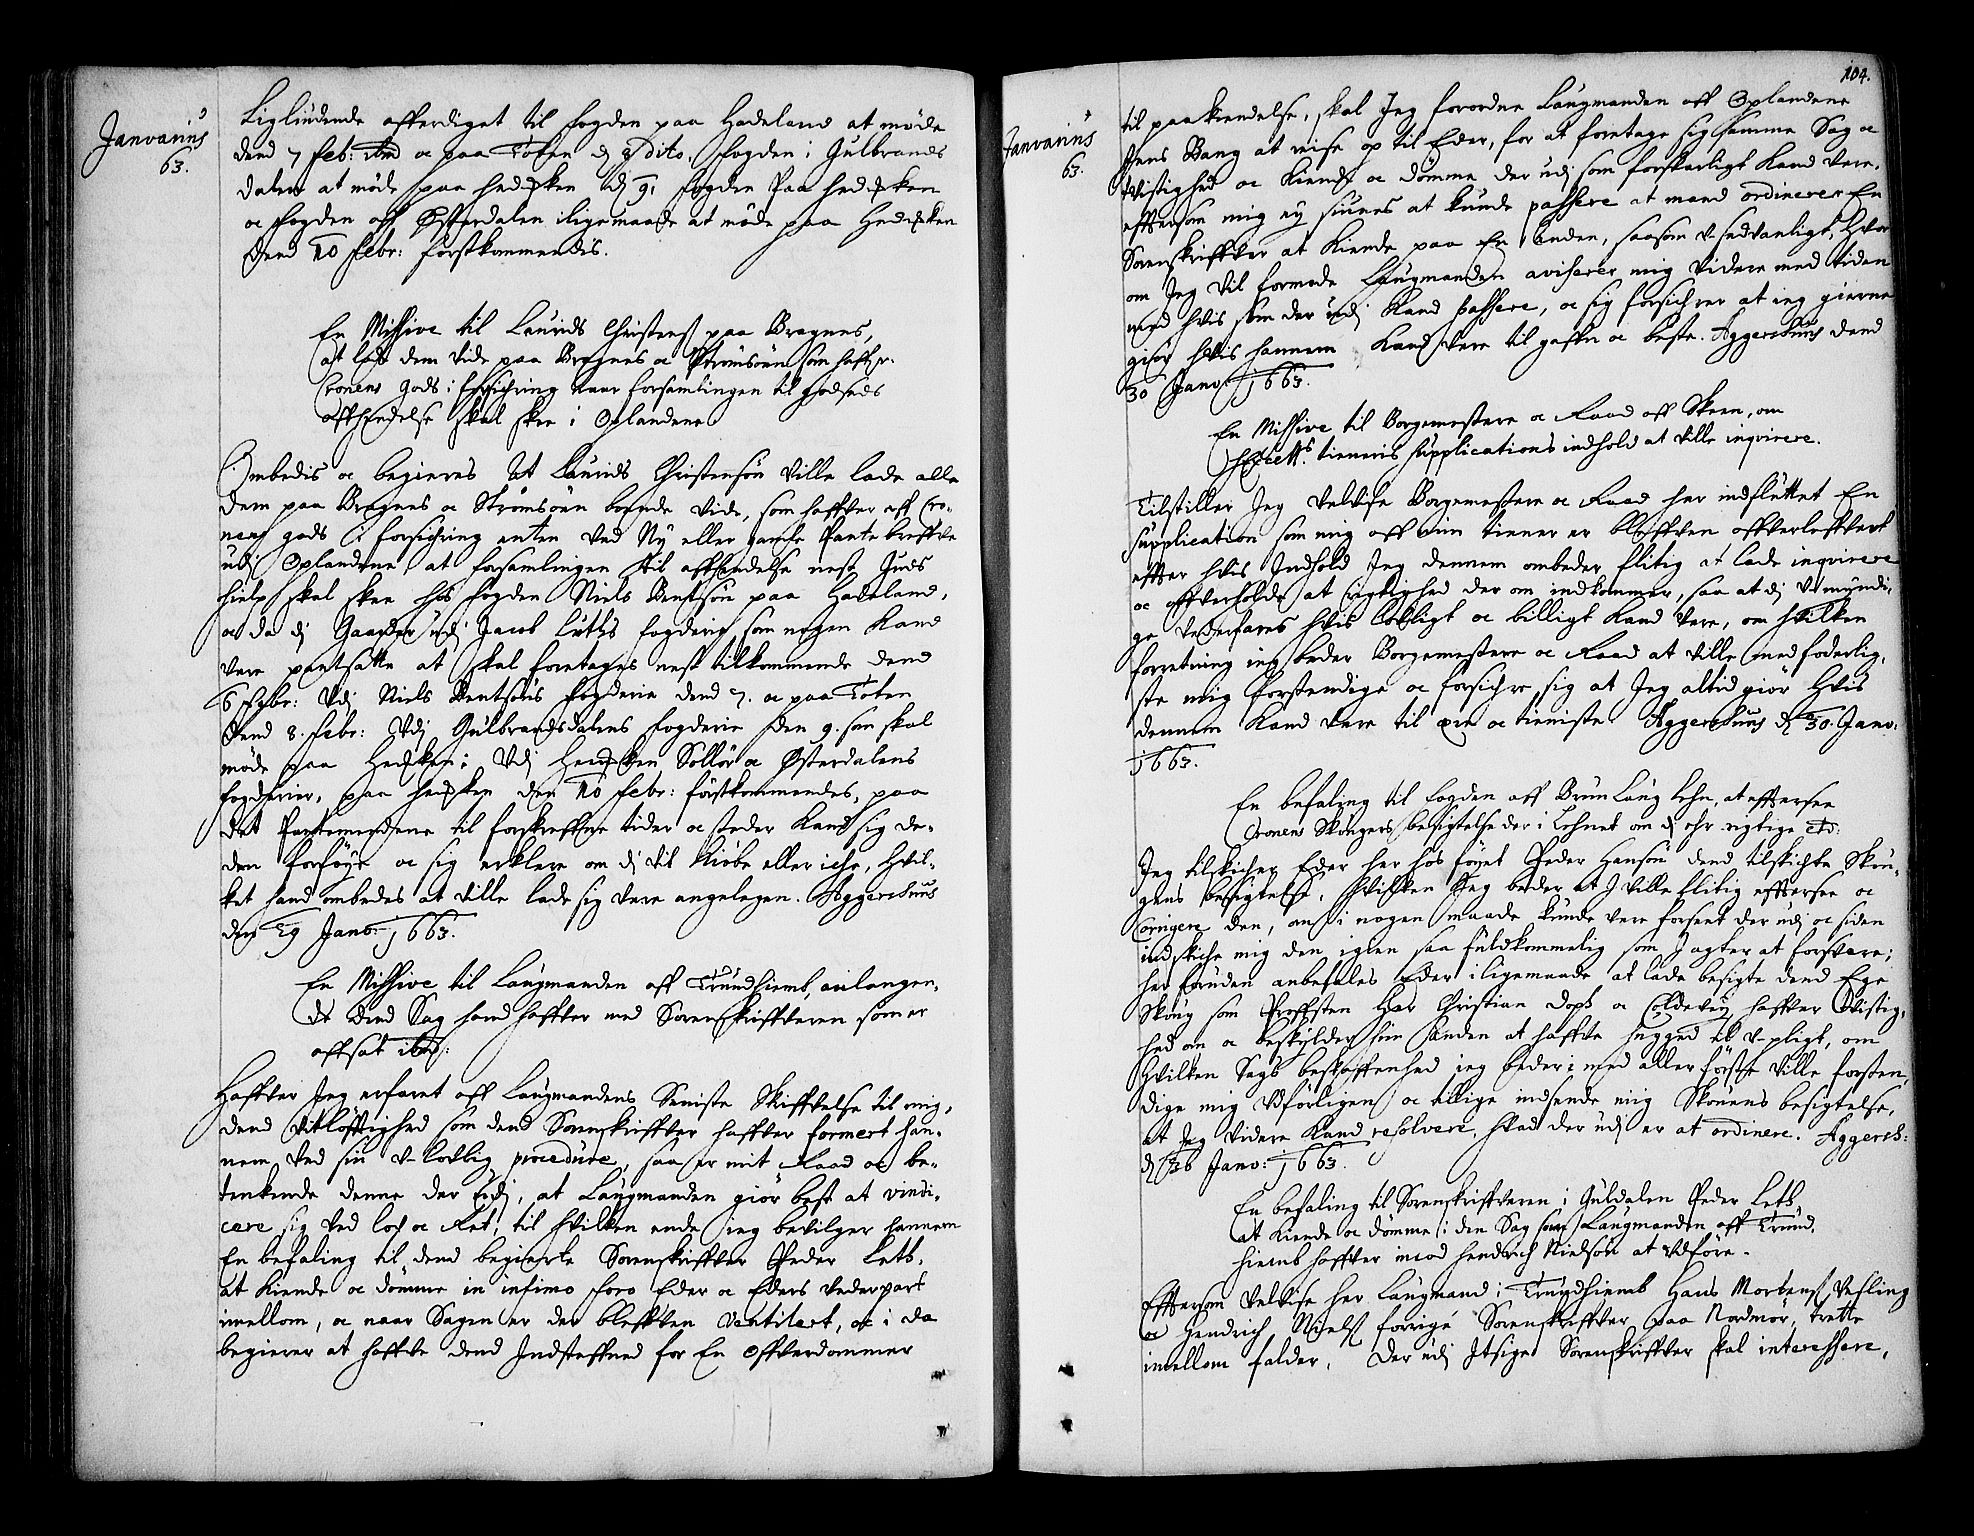 Janvarius
63.
Liglÿdende afferdiget til fogden paa Hadeland at møde
dend 7 feb: oc paa Toten d. 8 dito, fogden i Gulbrands
dalen at møde paa Hedemken d. 9. fogden paa Hedemken
oc fogden off Østerdalen iligemaade at møde paa Hedemken
dend 10 febr: førstkommendis.
En Missive til Laurids Christens: paa Bragnes,
at lade dem vide paa Bragnes oc Strømsøen som haffr.
Cronens gods i forsichring naar forsamlingen til godseds
affhendelse skal skee i Oplandene
Ombedis oc begieres At Laurids Christensøn ville lade alle
dem paa Bragnes oc Strømsøen boende vide, som haffver aff Cro-
nens gods i forsichring enten ved Ny eller gamle Pante breffve
udj Oplandene at forsamlingen til affhendelse nest Guds
hielp skal skee hos fogden Niels Bentsøn paa Hadeland,
oc da dj Gaarder udj Jacob Luths fogderie som nogen kand
vere pantsatte at skal foretages nest tilkommende dend
6 febr: Vdj Niels Bentsøns fogderie dend 7. oc paa Toten
dend 8. febr: Vdj Gulbrandsdalens fogderie den 9. som skal
møde paa Hedemken: Vdj Hedemken Solløer oc Østerdalens
fogderier, paa Hedemken den 10 febr: førstkommendes, paa
det Pantemendene til forskreffne tider oc steder kand sig der-
den forføye oc sig erklere om dj vil kiøbe eller iche, hvil-
ket hand ombedes at ville lade sig vere angelegen. Aggershuus
den 29 Janv: 1663.
En Missive til Laugmanden off Trundhiemb, anlangen-
de dend Sag hand haffver med Sorenskriffveren som er
affsat ibd:
Haffver Jeg erfaret off Laugmandens Seniste Skriffvelse til mig,
dend vitløfftighed som dend Sorenskriffver haffver formert han-
nem ved sin v-lovlig procedure, saa er mit Raad oc be-
tenkende denne der udj, at Laugmanden giør best at vindi-
cere sig ved lov oc Ret, til hvilken ende ieg bevilger hannem
En befaling til dend begierte Sorenskriffver Peder Leth,
at kiende oc dømme in infimo foro Eder oc Eders vederpart
imellom, oc naar Sagen er der bleffven ventilert, oc i da
begierer at haffve dend Indsteffned for En offverdommer
104.
Janvarius
63.
til paakiendelse, skal Jeg forordne Laugmanden off Oplandene
Jens Bang at reise op til Eder, for at foretage sig samme Sag oc
tvistighed oc kiende oc dømme der udj som forsvarligt kand vere,
effersom mig ey siunes at kunde passere at mand ordinerer En
Sorenskriffver at kiende paa En anden, saasom v-sedvanligt, hvor
om Jeg vil formode Laugmanden aviserer mig videre med tiden
med hvis som der udj kand passere, oc sig forsichrer at ieg gierne
giør hvis hannem kand vere til gaffn oc beste. Aggershuus dend
30 Janv: 1663.
En Missive til Borgemestere oc Raad off Skeen, om
Excell: tieneris supplications indhold at ville inqvirere.
Tilstiller Jeg velvise Borgemestere oc Raad her indsluttet En
supplication som mig off min tiener er bleffven offverleffvert
effter hvis Indhold Jeg dennem ombeder flitig at lade inqvirere
oc offverholde at rigtighed der om indkommer, saa at dj vmyndi-
ge vederfares hvis lovligt oc billigt kand vere, om hvilken
forretning ieg beder Borgemestere oc Raad at ville med foderlig-
ste mig forstendige oc forsichre sig at Jeg altid giør hvis
dennem kand vere til ære oc tieniste. Aggershuus d. 30. Janv:
1663.
En befaling til fogden off Brunlaug lehn, at effersee
Cronens Skougers besigtelse der i Lehnet om dj ehr rigtige etc:
Jeg tilskicher Eder her hos føyet Peder Hansøn dend tilskichte Skou-
gens besigtelse, hvilken Jeg beder at I ville flitig effersee oc
Corrigere den, om i nogen maade kunde vere forseet der udj oc siden
indskiche mig den igien saa fuldkommelig som I agter at forsvare;
her foruden anbefales Eder iligemaade at lade besigte dend Ege
Skoug som Proffsten Her Christian Dops oc Coldevey haffver tvistig-
hed om oc beskylder hin anden at haffve hugged til v-pligt, om
hvilken Sags beskaffenhed ieg beder i med aller første ville forsten-
dige mig vdførligen oc tillige indsende mig Skouens besigtelse,
at Jeg videre kand resolvere, hvad der udj er at ordinere. Aggersh:
d. 36 Janv: 1663.
En befaling til Sorenskriffveren i Guldalen Peder Leth,
at kiende oc dømme i den Sag som Laugmanden off Trund-
hiemb haffver imod Hendrich Nielsøn at vdføre.
Effersom velvise her Laugmand i Trundhiemb Hans Mortens: Vesling
oc Hendrich Niels: forrige Sorenskriffver paa Nordmør, trette
imellom falder, der udj Itzige Sorenskriffver skal interessere,